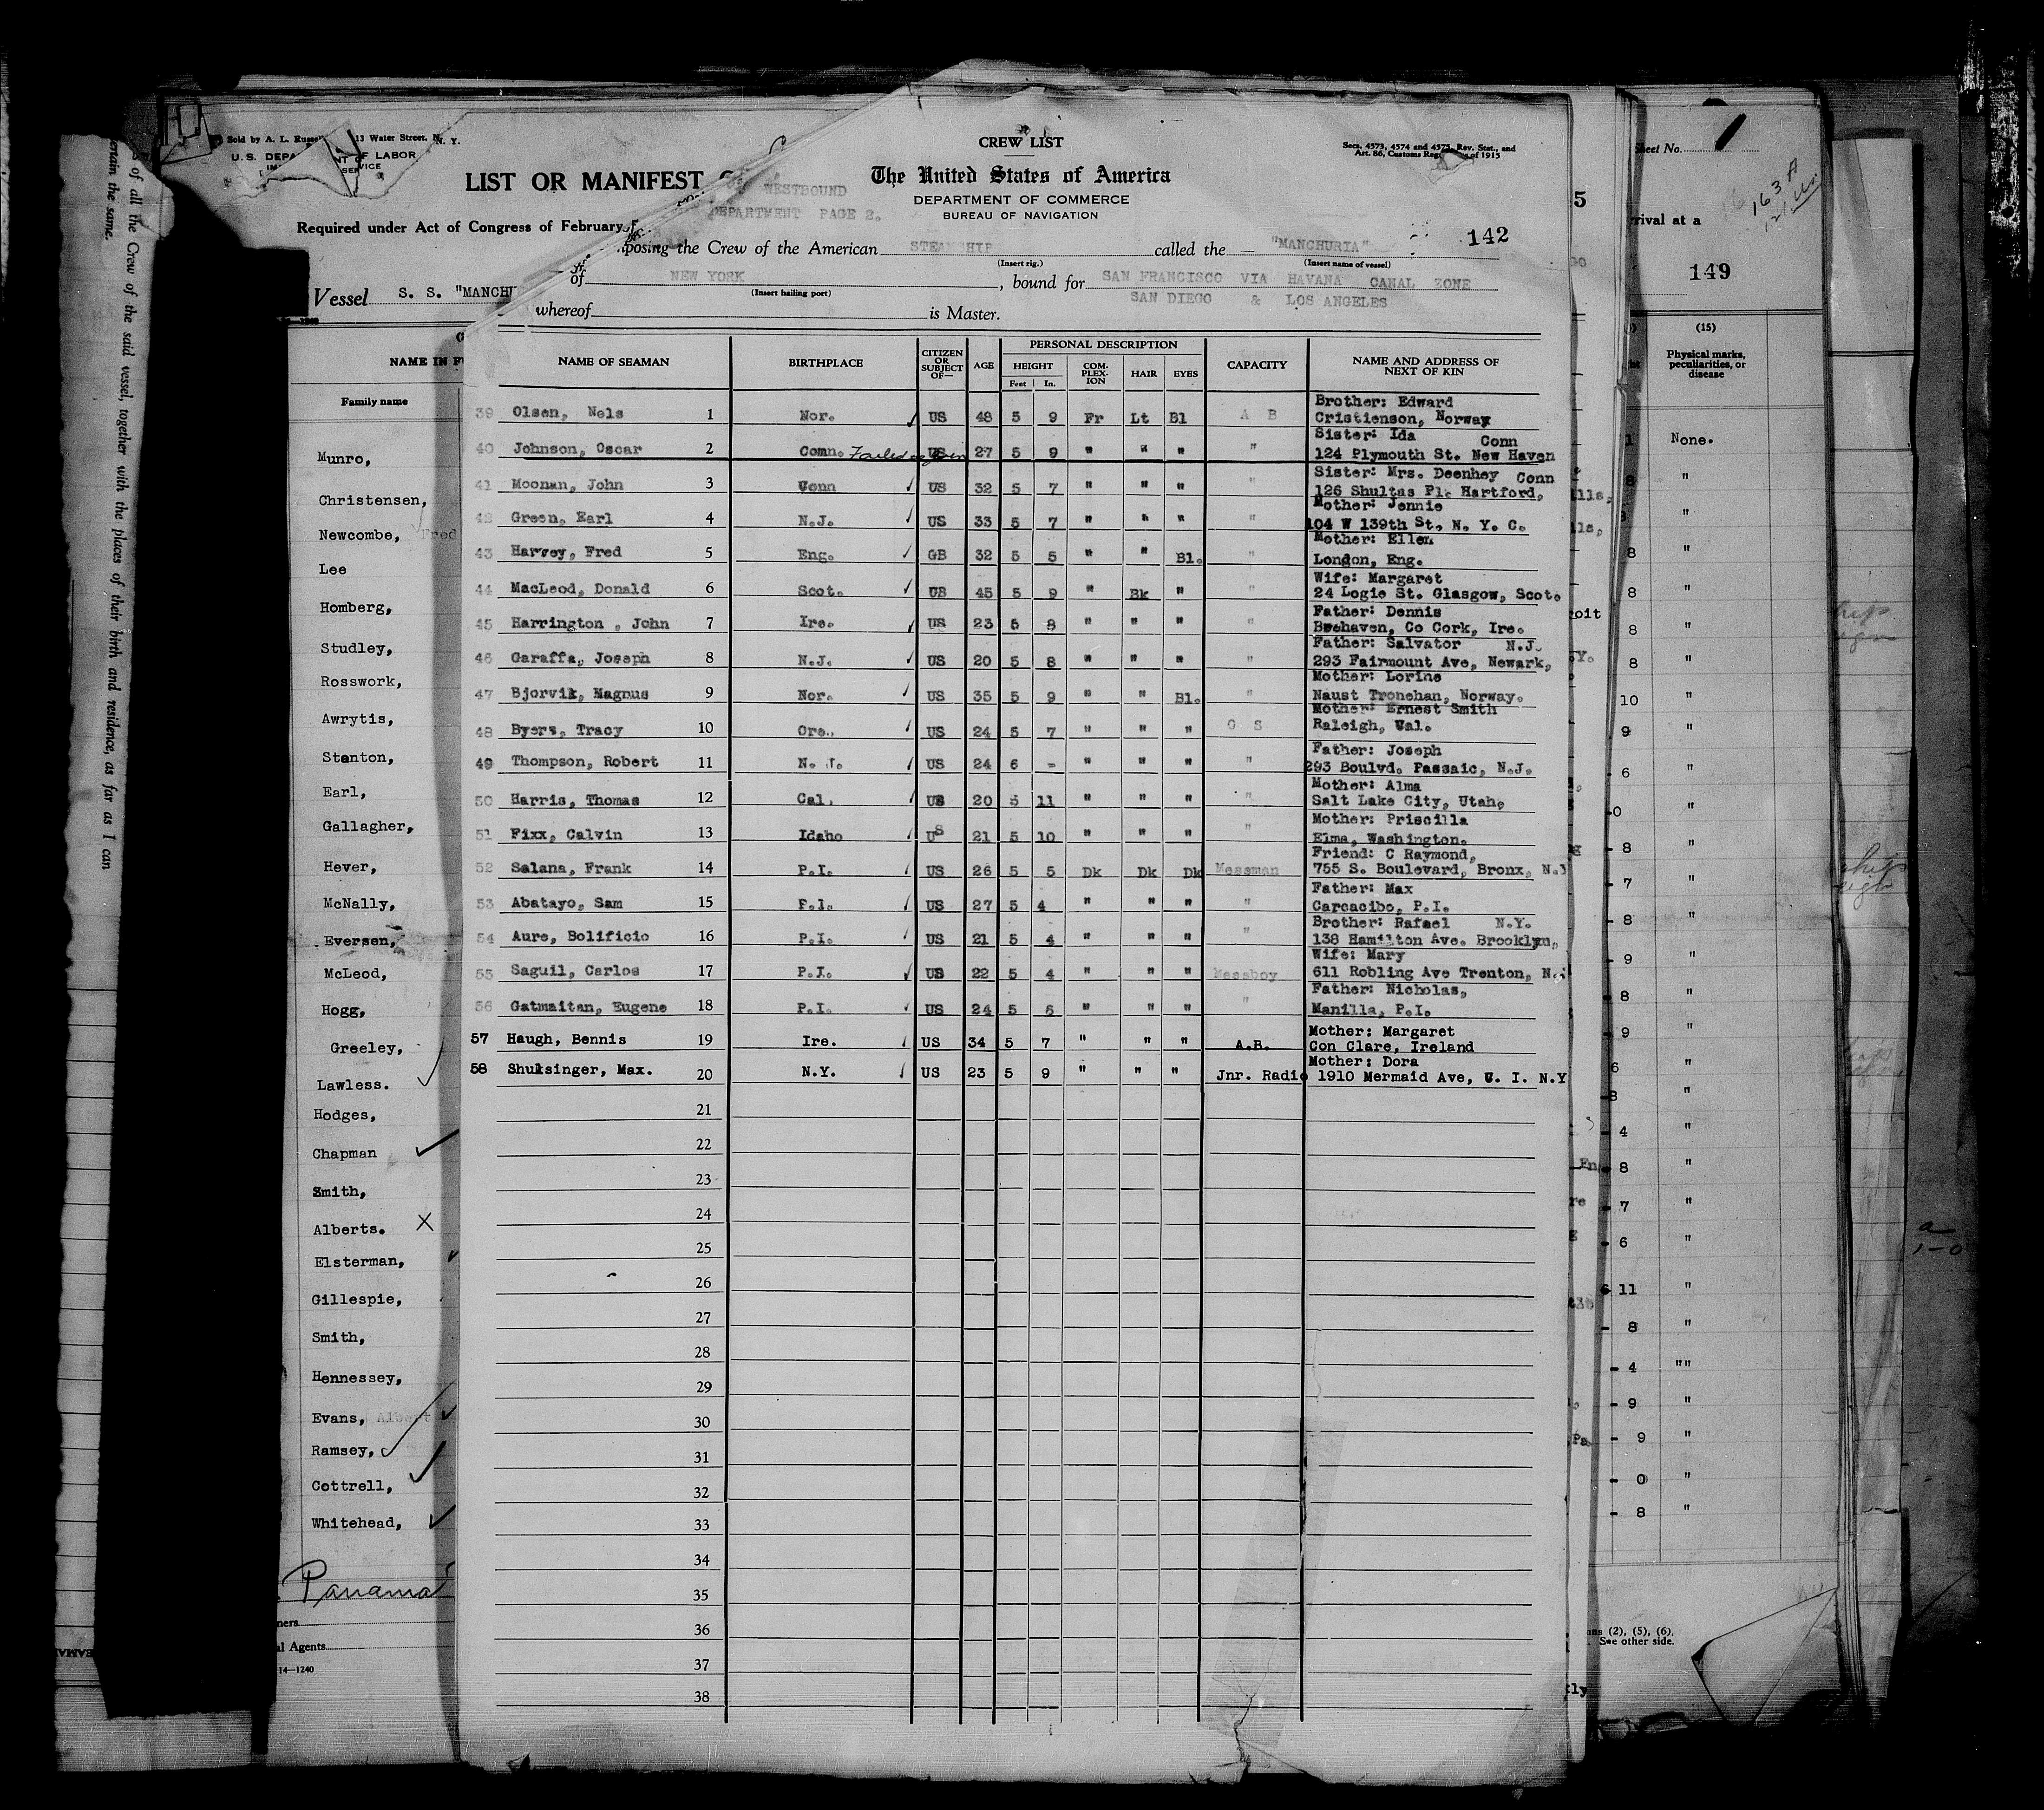 Sold by A. L. Russe 13 Water Street, N. Y.
U. S. DEPA NT OF LABOR
LIST OR MANIFEST
Required under Act of Congress of February
Vessel S. S. "MANCHU
NAME IN F
Family name
Munro,
Christensen,
Newcombe, Fred
Lee
Homberg,
Studley,
Rosswork,
Awrytis,
Stanton,
Earl,
Gallagher,
Hever,
McNally,
Eversen,
McLeod,
Hogg,
Greeley,
Lawless.
Hodges,
Chapman
Smith,
Alberts. X
Elsterman,
Gillespie,
Smith,
Hennessey,
Evans, Albert
Ramsey,
Cottrell,
Whitehead,
Panama
al Agents
14—1240
of all the Crew of the said vessel, together with the places of their birth and residence, as far as I can
ertain the same.
CREW LIST
Secs. 4573, 4574 and 4575, Rev. Stat., and
Art. 86, Customs Reg of 1915
The United States of America
DEPARTMENT OF COMMERCE
BUREAU OF NAVIGATION
WESTBOUND
DEPARTMENT PAGE 2.
142
posing the Crew of the American STEAMSHIP called the "MANCHURIA"
(Insert rig.) (Insert name of vessel)
of NEW YORK, bound for SAN FRANCISCO VIA HAVANA CANAL ZONE
(Insert hailing port) SAN DIEGO & LOS ANGELES
whereof is Master.
NAME OF SEAMAN BIRTHPLACE CITIZEN OR SUBJECT OF— AGE PERSONAL DESCRIPTION CAPACITY NAME AND ADDRESS OF NEXT OF KIN
HEIGHT COM-PLEX-ION HAIR EYES
Feet In.
39 Olsen, Nels 1 Nor. US 48 5 9 Fr Lt Bl A B Brother: Edward
Cristienson, Norway
40 Johnson, Oscar 2 Conn. Failed to join US 27 5 9 " " " " Sister: Ida Conn
124 Plymouth St. New Haven
41 Moonan, John 3 Conn US 32 5 7 " " " " Sister: Mrs. Deenhey Conn
126 Shultas Pl. Hartford,
42 Green, Earl 4 N.J. US 33 5 7 " " " " Mother: Jennie
104 W 139th St. N. Y. C.
43 Harvey, Fred 5 Eng. GB 32 5 5 " " Bl. " Mother: Ellen
London, Eng.
44 MacLeod, Donald 6 Scot. GB 45 5 9 " Bk " " Wife: Margaret
24 Logie St. Glasgow, Scot.
45 Harrington , John 7 Ire. US 23 5 8 " " " " Father: Dennis
Beehaven, Co Cork, Ire.
46 Garaffa, Joseph 8 N.J. US 20 5 8 " " " " Father: Salvator N.J.
293 Fairmount Ave, Newark,
47 Bjorvik, Magnus 9 Nor. US 35 5 9 " " Bl. Mother: Lorine
Naust Tronehan, Norway.
48 Byers, Tracy 10 Ore. US 24 5 7 " " " O S Mother: Ernest Smith
Raleigh, Cal.
49 Thompson, Robert 11 N. J. US 24 6 - " " " " Father: Joseph
293 Boulvd. Passaic, N.J.
50 Harris, Thomas 12 Cal. US 20 5 11 " " " " Mother: Alma
Salt Lake City, Utah,
51 Fixx, Calvin 13 Idaho US 21 5 10 " " " " Mother: Priscilla
Elma, Washington.
52 Salana, Frank 14 P.I. US 26 5 5 Dk Dk Dk Messman Friend: C Raymond,
755 S. Boulevard, Bronx, N.Y
53 Abatayo, Sam 15 P.I. US 27 5 4 " " " " Father: Max
Carcacibo, P.I.
54 Aure, Bolificio 16 P.I. US 21 5 4 " " " " Brother: Rafael N.Y.
138 Hamilton Ave. Brooklyn,
55 Saguil, Carlos 17 P.I. US 22 5 4 " " " Messboy Wife: Mary
611 Robling Ave Trenton, N.J
56 Gatmaitan, Eugene 18 P.I. US 24 5 6 " " " " Father: Nicholas,
Manilla, P.I.
57 Haugh, Bennis 19 Ire. US 34 5 7 " " " A.B. Mother: Margaret
Con Clare, Ireland
58 Shuksinger, Max. 20 N.Y. US 23 5 9 " " " Jnr. Radio Mother: Dora
1910 Mermaid Ave, C. I. N.Y
21
22
23
24
25
26
27
28
29
30
31
32
33
34
35
36
37
38
Sheet No. 1
163 A
rrival at a
149
(15)
Physical marks, peculiarities, or disease
None.
(2), (5), (6).
See other side.